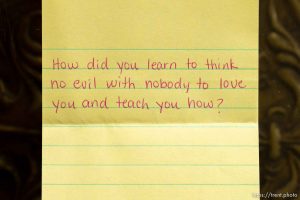 How did you learn to think
no evil with nobody to love
you and teach you how?